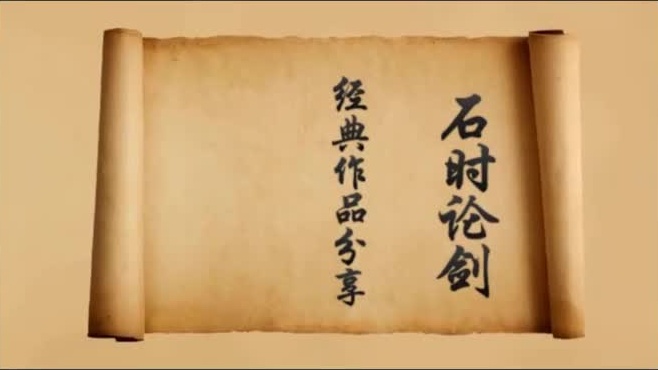 石时论剑
经典作品分享